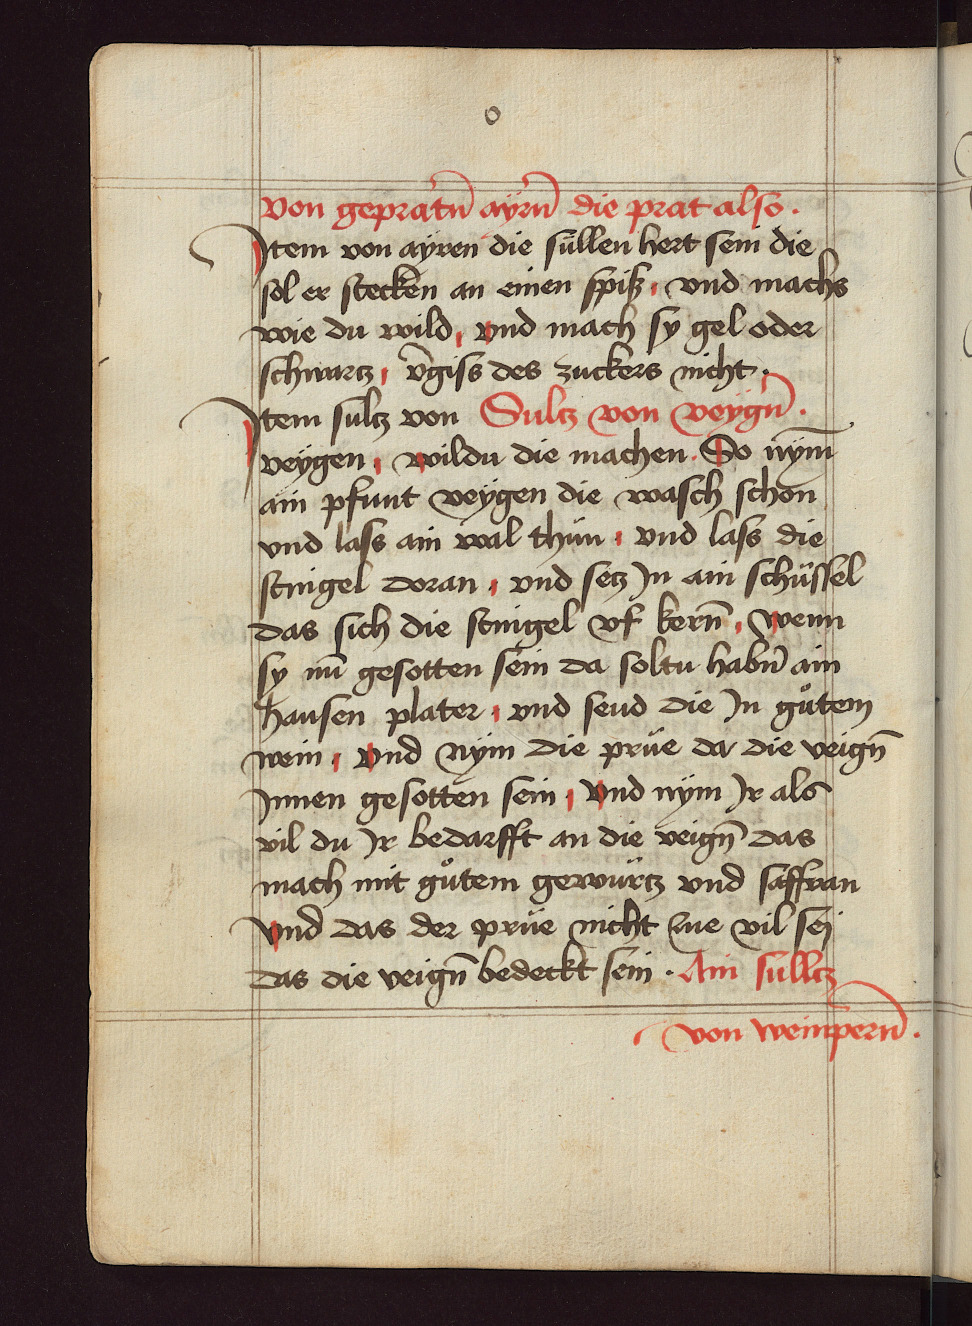 o
Von gepratn̄ ayrn̄ die prat also .
Item von aÿren die süllen hert sein die
sol er stecken an einen spiß , vnd machs
wie du wild , vnd mach sy gel oder
schwartz , v̄giss des zuckers nicht .
Item sultz von Sultz von veygn̄ .
veygen , wildu die machen . So nym̄
ain pfunt veÿgen die wasch schon
vnd lass ain wal thün , vnd lass die
stingel doran , vnd setz In ain schüssel
das sich die stingel vf kern̄ , wenn
sy nu̅ gesotten sein da soltu habn̄ ain
hausen plater , vnd seud die In gůtem
wein , vnd nÿm die prüe da die veign̄
Innen gesotten sein , Vnd nÿm Ir als
vil du Ir bedarfft an die veign̄ das
mach mit gůtem gewürtz vnd saffran
Vnd das der prüe nicht zue vil seÿ
das die veign̄ bedeckt sein . Ain sulltz
von weinpern̄ .